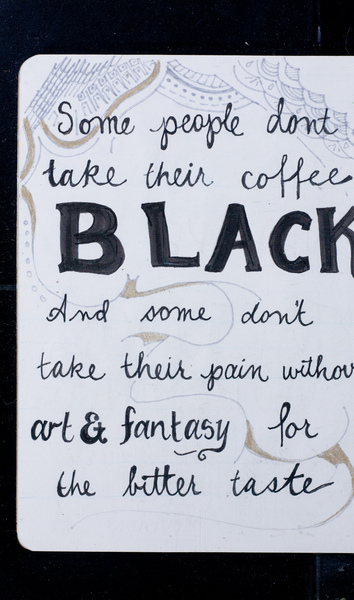 Some people dont
take their coffee
BLACK
And some don't
take their pain withou
art & fantasy for
the bitter taste